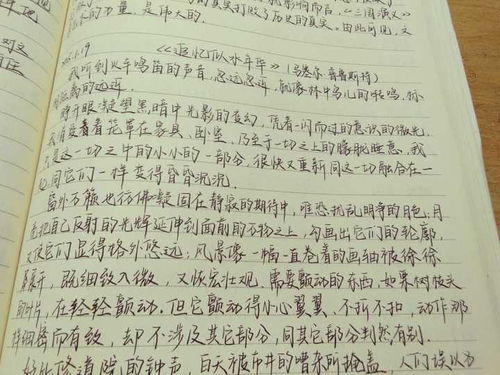 的真实打败了历史的真实。由此可见，文
木的力量，是伟大的。
1.19 《追忆似水年华》（马塞尔·普鲁斯特）
我听到火车鸣笛的声音，忽远忽近，就像林中鸟儿的转鸣，标
距离的远近。
睁开眼凝望黑暗中光影的变幻，凭着一闪而过的意识的微光，
我消受着笼罩在家具、卧室、乃至于一切之上的朦胧睡意，我
只是这一切之中的小小的一部分，很快又重新同这一切融合在一
起，同它们一样变得昏昏沉沉。
窗外万籁也彷佛凝固在静寂的期待中，唯恐扰乱明净的月色；月
亮把自己反射的光辉延伸到面前的万物之上，勾画出它们的轮廓，
又使它们显得格外悠远；风景像一幅一直卷着的画轴被徐徐
展开，既细致入微，又恢宏壮观。需要颤动的东西，如果树枝头
的叶片，在轻轻颤动。但它颤动得小心翼翼、不折不扣，动作那
样细密而有致，却不涉及其它部分，同其它部分判然有别。
好比修道院的钟声，白天被市井的嘈杂所掩盖，人们误以为